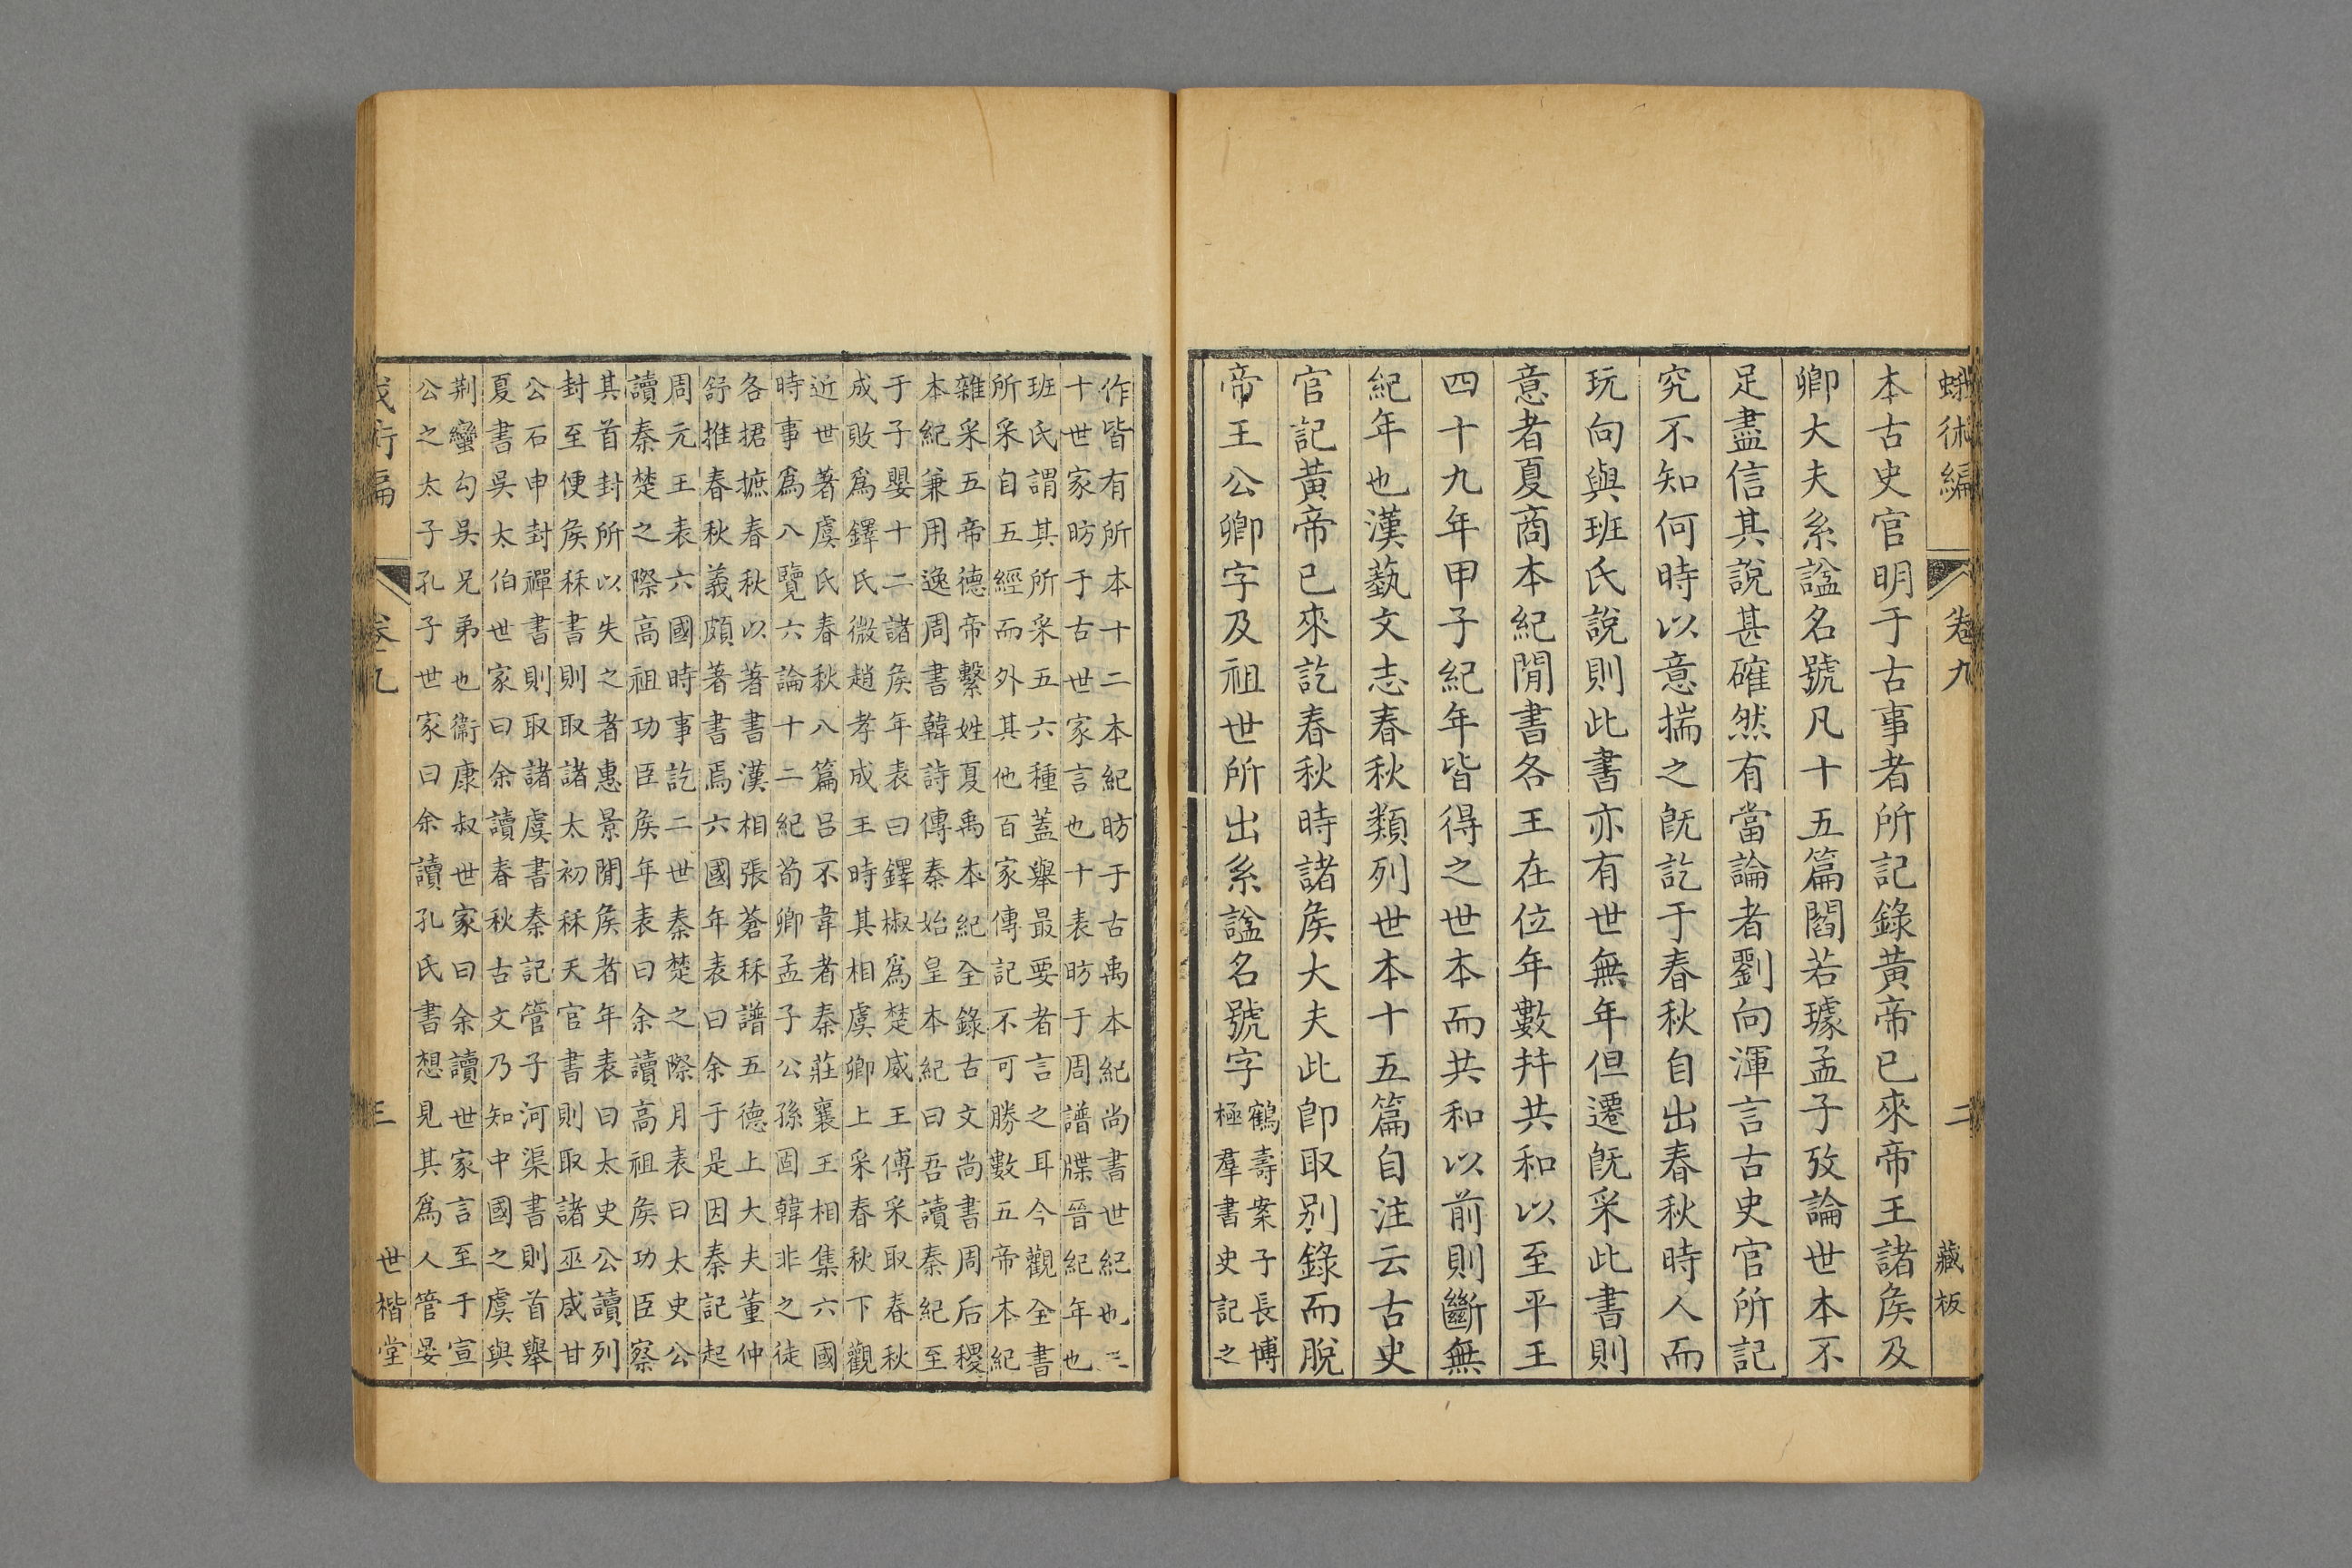 蛾術編 卷九 二 藏板
本古史官明于古事者所記錄黃帝已來帝王諸矦及
卿大夫系諡名號凡十五篇閻若璩孟子攷論世本不
足盡信其說甚確然有當論者劉向渾言古史官所記
究不知何時以意揣之旣訖于春秋自出春秋時人而
玩向與班氏說則此書亦有世無年但遷旣采此書則
意者夏商本紀閒書各王在位年數幷共和以至平王
四十九年甲子紀年皆得之世本而共和以前則斷無
紀年也漢藝文志春秋類列世本十五篇自注云古史
官記黃帝已來訖春秋時諸矦大夫此卽取別錄而脫
帝王公卿字及祖世所出系諡名號字
鶴壽案子長博
極羣書史記之
作皆有所本十二本紀昉于古禹本紀尚書世紀也三
十世家昉于古世家言也十表昉于周譜牒晉紀年也
班氏謂其所采五六種蓋舉最要者言之耳今觀全書
所采自五經而外其他百家傳記不可勝數五帝本紀
雜采五帝德帝繫姓夏禹本紀全錄古文尚書周后稷
本紀兼用逸周書韓詩傳秦始皇本紀曰吾讀秦紀至
于子嬰十二諸矦年表曰鐸椒爲楚威王傅采取春秋
成敗爲鐸氏微趙孝成王時其相虞卿上采春秋下觀
近世著虞氏春秋八篇呂不韋者秦莊襄王相集六國
時事爲八覽六論十二紀荀卿孟子公孫固韓非之徒
各捃摭春秋以著書漢相張蒼秝譜五德上大夫董仲
舒推春秋義頗著書焉六國年表曰余于是因秦記起
周元王表六國時事訖二世秦楚之際月表曰太史公
讀秦楚之際高祖功臣矦年表曰余讀高祖矦功臣察
其首封所以失之者惠景閒矦者年表曰太史公讀列
封至便矦秝書則取諸太初秝天官書則取諸巫咸甘
公石申封禪書則取諸虞書秦記管子河渠書則首舉
夏書吳太伯世家曰余讀春秋古文乃知中國之虞與
荆蠻勾吳兄弟也衞康叔世家曰余讀世家言至于宣
公之太子孔子世家曰余讀孔氏書想見其爲人管晏
術編 卷九 三 世楷堂